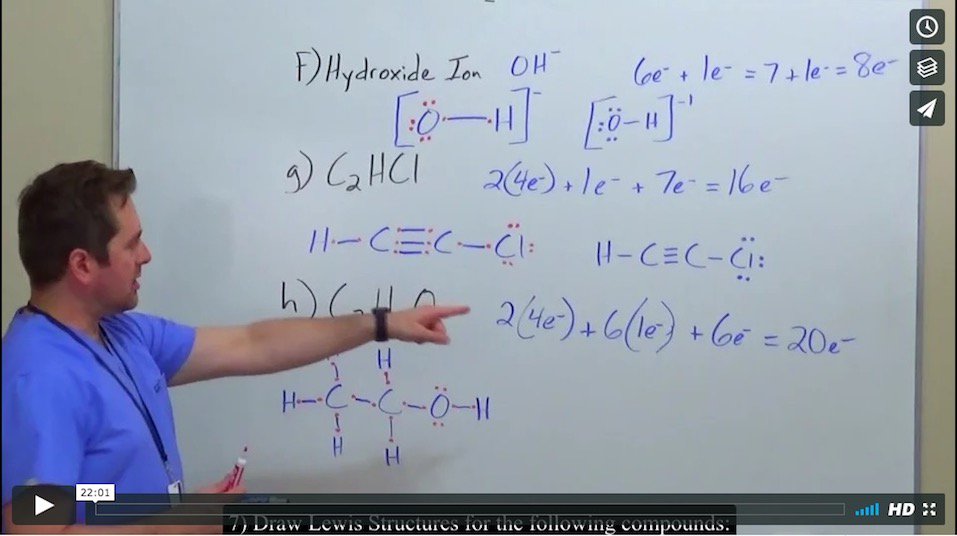 F) Hydroxide Ion OH⁻ 6e⁻ + 1e⁻ = 7 + 1e⁻ = 8e⁻
[:Ö—H]⁻ [:Ö–H]⁻¹
g) C₂HCl 2(4e⁻) + 1e⁻ + 7e⁻ = 16e⁻
H—C≡C—Cl: H–C≡C–Cl:
h) C₂H O 2(4e⁻) + 6(1e⁻) + 6e⁻ = 20e⁻
H
H—C—C—O—H
H H
22:01
HD
7) Draw Lewis Structures for the following compounds: